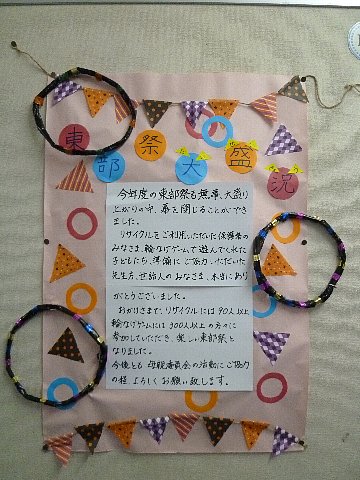 東部祭大盛況
今年度の東部祭も無事、大盛り
上がりの中、幕を閉じることができ
ました。
リサイクルをご利用いただいた保護者の
みなさま、輪なげゲームで遊んでくれた
子どもたち、準備にご協力いただいた
先生方、世話人のみなさま、本当にあり
がとうございました。
おかげさまで、リサイクルには90人以上
輪なげゲームには300人以上の方々に
参加していただき、楽しい東部祭と
なりました。
今後とも母親委員会の活動にご協力
の程、よろしくお願い致します。